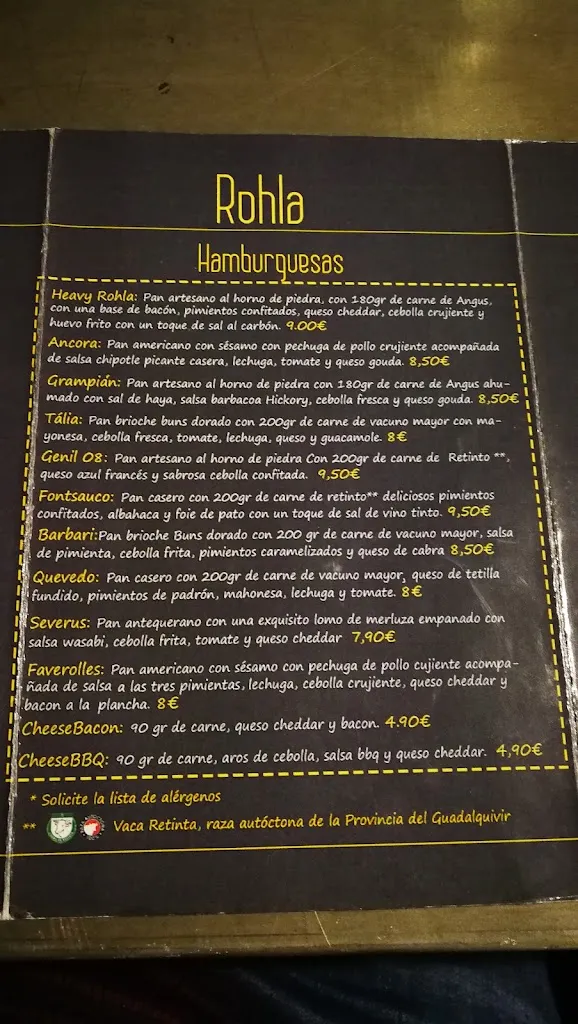 Rohla
Hamburguesas
Heavy Rohla: Pan artesano al horno de piedra, con 180gr de carne de Angus,
con una base de bacón, pimientos confitados, queso cheddar, cebolla crujiente y
huevo frito con un toque de sal al carbón. 9.00€
Ancora: Pan americano con sésamo con pechuga de pollo crujiente acompañada
de salsa chipotle picante casera, lechuga, tomate y queso gouda. 8,50€
Grampián: Pan artesano al horno de piedra con 180gr de carne de Angus ahu-
mado con sal de haya, salsa barbacoa Hickory, cebolla fresca y queso gouda. 8,50€
Tália: Pan brioche buns dorado con 200gr de carne de vacuno mayor con ma-
yonesa, cebolla fresca, tomate, lechuga, queso y guacamole. 8€
Genil 08: Pan artesano al horno de piedra Con 200gr de carne de Retinto **,
queso azul francés y sabrosa cebolla confitada. 9,50€
Fontsauco: Pan casero con 200gr de carne de retinto** deliciosos pimientos
confitados, albahaca y foie de pato con un toque de sal de vino tinto. 9,50€
Barbari:Pan brioche Buns dorado con 200 gr de carne de vacuno mayor, salsa
de pimienta, cebolla frita, pimientos caramelizados y queso de cabra 8,50€
Quevedo: Pan casero con 200gr de carne de vacuno mayor, queso de tetilla
fundido, pimientos de padrón, mahonesa, lechuga y tomate. 8€
Severus: Pan antequerano con una exquisito lomo de merluza empanado con
salsa wasabi, cebolla frita, tomate y queso cheddar 7,90€
Faverolles: Pan americano con sésamo con pechuga de pollo cujiente acompa-
ñada de salsa a las tres pimientas, lechuga, cebolla crujiente, queso cheddar y
bacon a la plancha. 8€
CheeseBacon: 90 gr de carne, queso cheddar y bacon. 4.90€
CheeseBBQ: 90 gr de carne, aros de cebolla, salsa bbq y queso cheddar. 4,90€
* Solicite la lista de alérgenos
** Vaca Retinta, raza autóctona de la Provincia del Guadalquivir